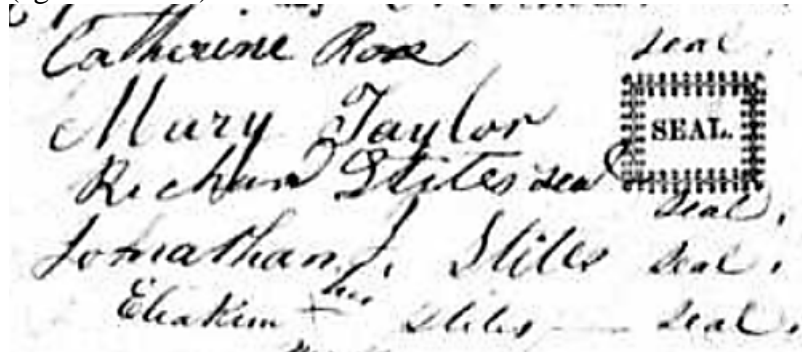 Catherine Rose seal.
Mary Taylor SEAL.
Richard Stites seal
seal.
Jonathan J. Stiles seal.
his
Eliakim + Stiles seal.